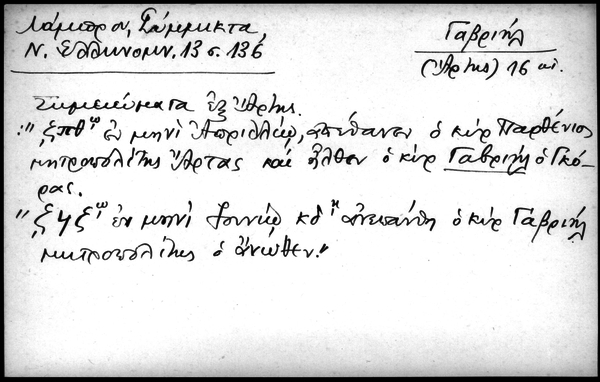 Λάμπρου, Σύμμικτα,
Ν. Ἑλληνομν. 13 σ. 136
Γαβριήλ
(Ἄρτης) 16 αἰ.
Σημειώματα ἐξ Ἄρτης.
"ζπθῳ ἐν μηνὶ Ἀπριλλίῳ, ἀπέθανεν ὁ κὺρ Παρθένιος
μητροπολίτης Ἄρτας καὶ ἦλθεν ὁ κὺρ Γαβριήλ ὁ Γκό-
ρας.
"ζϟζῳ ἐν μηνὶ Ἰουνίῳ κδῃ ἀνεπαύθη ὁ κὺρ Γαβριήλ
μητροπολίτης ὁ ἄνωθεν."